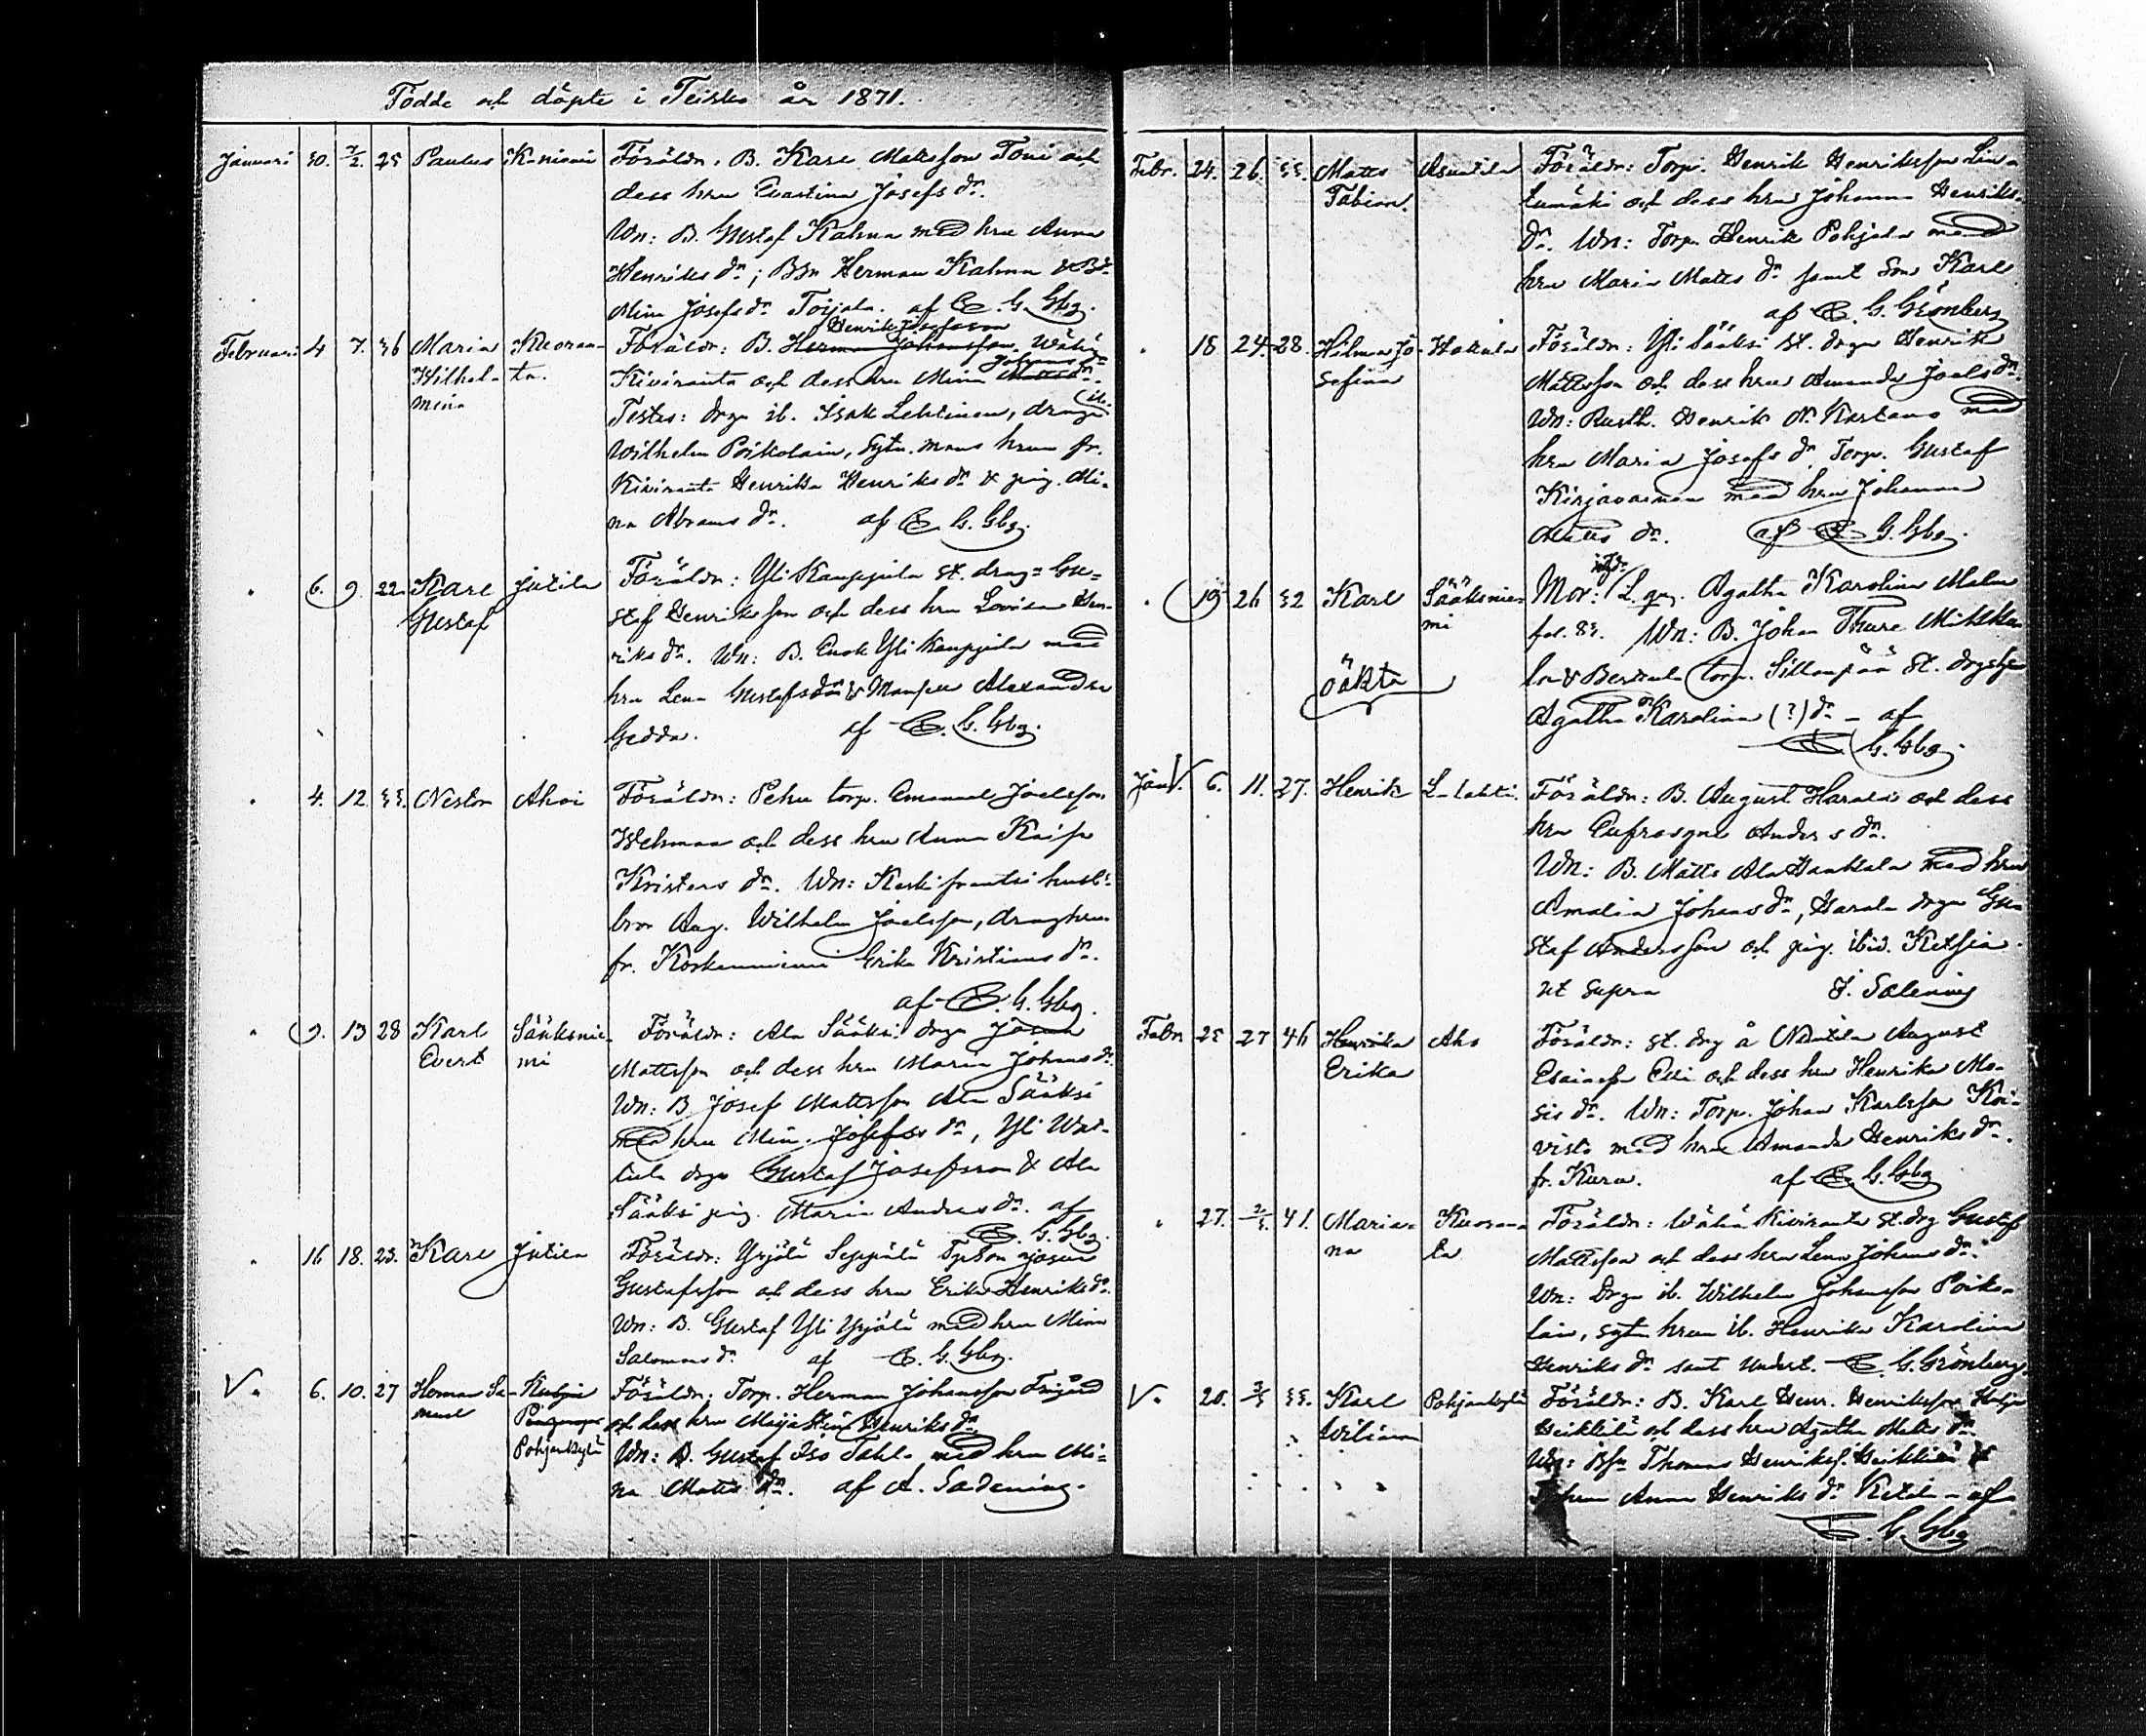 Födde och döpte i Teisko år 1871.
Januari 30. 7/2. 25 Paulus K-niemi Föräldr. B. Karl Mattsson Toni och
dess hru Evastina Josefs dr.
Wn: B. Gustaf Kahna med hru Anna
Henriks dr; Bsn Herman Kahna & Bdr
Mina Josefs dr Torjala. af E. G. Gbg.
Februari 4 7. 36 Maria Kuoran- Föräldr: B. Herman Johansson Henrik Josefsson Wähä
Wilhel- ta. Kiviranta och dess hru Mina Matts dr Johans dr
mina Testes: drgn ib. Isak Lehtinen, drngn ib.
Wilhelm Poikolain, sytn. mans hrun fr.
Kiviranta Henrika Henriks dr & pig. Mi-
na Abrams dr. af E. G. Gbg.
" 6. 9. 22. Karl Jutila Föräldr: Yli Kauppila st. drng Gu-
Gustaf staf Henriksson och dess hru Lovisa Hen-
riks dr. Wn: B. Enok Yli Kauppila med
hru Lena Gustafs dr & Mamsell Alexandra
Gedda. af E. G. Gbg.
" 4. 12. 33. Nestor Ahoi Föräldr: Pehu torp. Emanuel Joelsson
Wehmaa och dess hru Anna Kaisa
Kristers dr. Wn: Keski frantsi husb:
bror Aug. Wilhelm Joelsson, drng hru
fr. Koskenniemi Erika Kristians dr.
af E. G. Gbg.
" 9. 13 28 Karl Sääksnie- Föräldr: Ala Sääksi drgn Josua
Evert mi Mattsson och dess hru Maria Johans dr.
Wn: B. Josef Mattsson Ala Sääksi
med hru Min. Josefs dr, Yli Wat-
tula drgn Gustaf Josefsson & Ala
Sääksi pig. Maria Anders dr. af
E. G. Gbg.
" 16 18. 23. Karl Jutila Föräldr: Yrjölä Seppälä Josua
Gustafsson och dess hru Erika Henriks dr.
Wn: B. Gustaf Yli Yrjölä med hru Mina
Salomons dr. af E. G. Gbg.
V " 6. 10. 27 Herman Sa- Föräldr: Torp. Herman Johansson Frigård
muel och dess hru Maja Stina Henriks dr
Pohjankylä Wn: B. Gustaf Iso Tahlo med hru Mi-
na Matts dr. af A. Sadenius.
Febr. 24. 26. 33. Matts Asuntila Föräldr: Torp. Henrik Henriksson Lin-
Fabian. tumäki och dess hru Johanna Henriks-
dr. Wn: Torp. Henrik Pohjala med
hru Maria Matts dr samt Son Karl
af E. G. Grönberg
" 18 24. 28. Hilma Jo- Hakula Föräldr: Yli Sääksi st. drgn Henrik
sefina Mattsson och dess hru Amanda Joels dr.
Wn: Rusth. Henrik N. Kertano med
hru Maria Josefs dr, Torp. Gustaf
Kirjavainen med hru Johanna
Matts dr. af E. G. Gbg.
" 19 26 32 Karl Sääksnie- Mor: L. qv. Agatha Karolina Malm
mi Wn: B. Johan Thure
oäkta torp. Sillanpää st.
Agatha Karolina (?) dr - af
E. G. Gbg.
Jan V. 6. 11. 27. Henrik L-lahti. Föräldr: B. August Harala och dess
hru Eufrosyne Anders dr.
Wn: B. Matts Ala Hankala med hru
Amalia Johans dr, Harala drgn Gu-
staf Andersson och pig. ibid. Ketsia
ut supra J. Salenius
Febr 25 27 46 Henrika Aho Föräldr: st. drg å August
Erika Esaiasson och dess hru Henrika Mo-
sis dr. Wn: Torp. Johan Karlsson Koi-
visto med hru Amanda Henriks dr.
fr. Kuru. af E. G. Gbg
" 27. 41. Maria- Kuoran- Föräldr: Wähä Kiviranta st. drg Gustaf
na ta Mattsson och dess hru Lena Johans dr.
Wn: Drgn ib. Wilhelm Johansson Poiko-
lain, sytn hrun ib. Henrika Karolina
Henriks dr samt undert. E. G. Grönberg.
V " 20. 33. Karl Pohjankylä Föräldr: B. Karl Henr. Henriksson
Wiliam Heikkilä och dess hru Agatha Matts dr
Wn: Bsn Thomas Henrikss. Heikkilä &
hrun Anna Henriks dr Ketola - af
E. G. Gbg